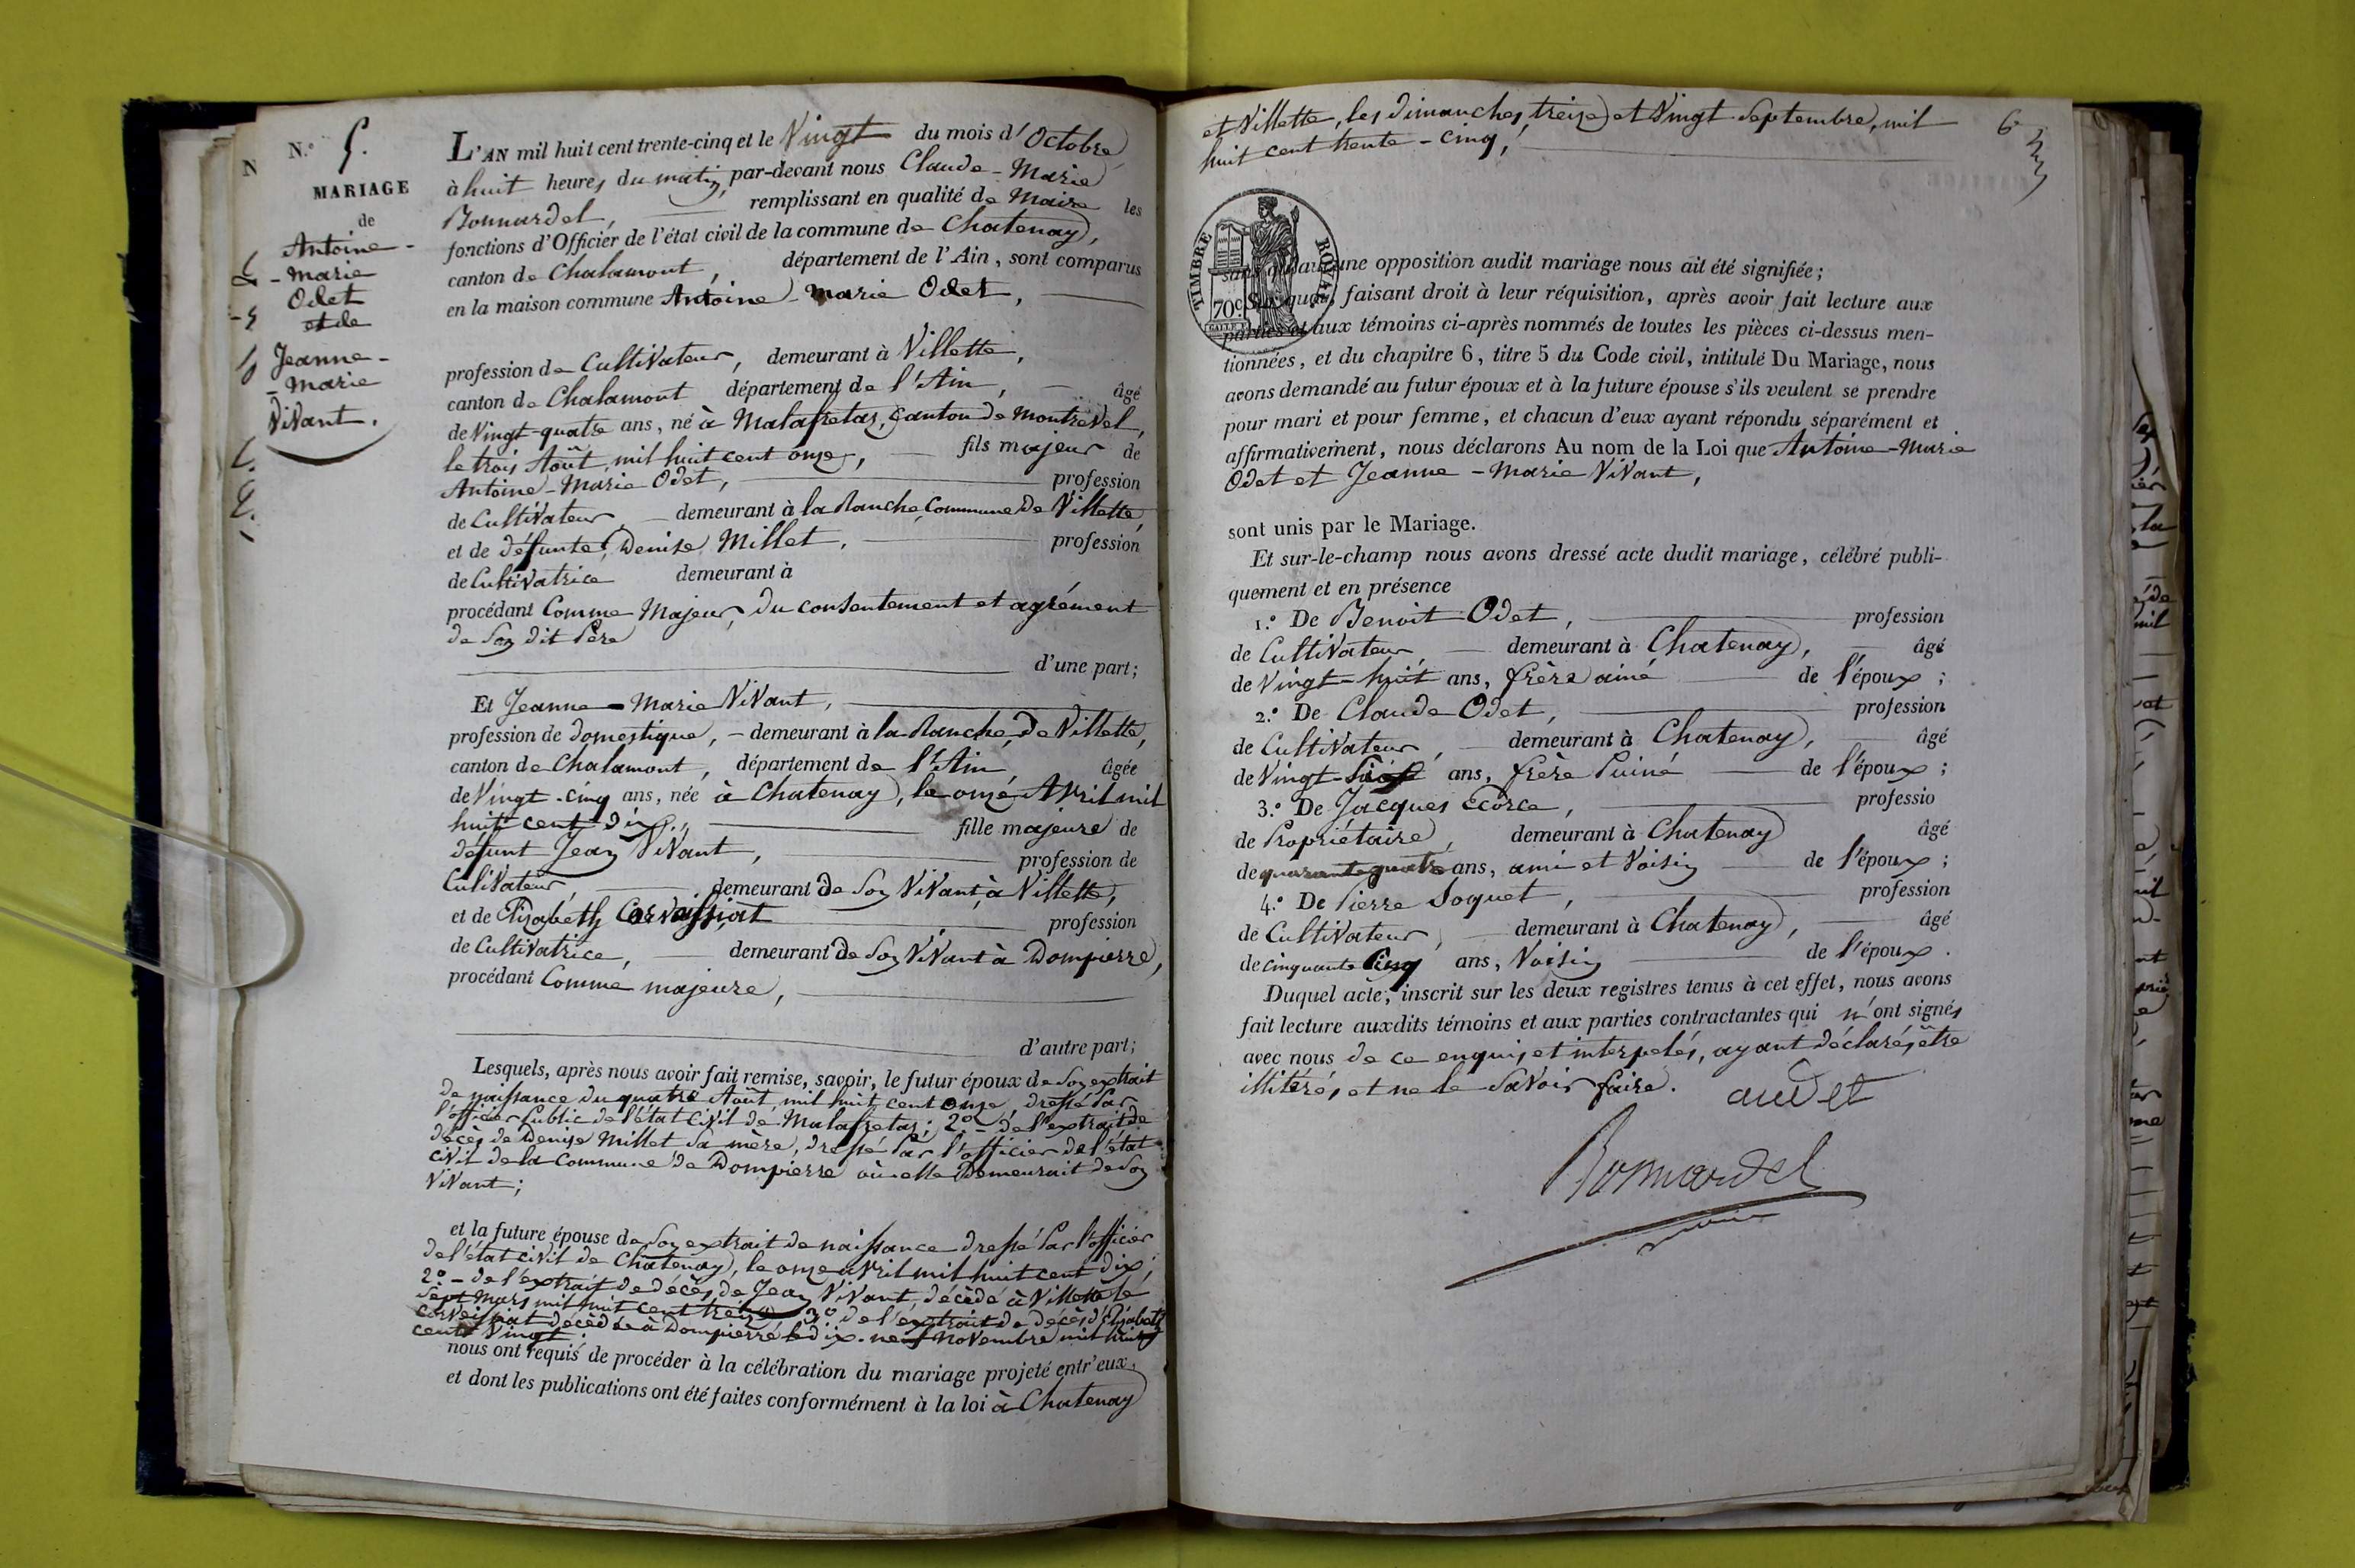 N.º 5.
MARIAGE
de
Antoine-
-Marie
Odet
et de
Jeanne-
-Marie
Vivant.
L'AN mil huit cent trente-cinq et le Vingt du mois d'Octobre
à huit heures du matin, par-devant nous Claude-Marie
Bonnardel, remplissant en qualité de Maire les
fonctions d'Officier de l'état civil de la commune de Chatenay,
canton de Chalamont, département de l'Ain, sont comparus
en la maison commune Antoine-Marie Odet,
profession de Cultivateur, demeurant à Villette,
canton de Chalamont département de l'Ain, âgé
de Vingt-quatre ans, né à Malafretaz, canton de Montrevel,
le trois Août, mil huit cent onze, fils majeur de
Antoine-Marie Odet, profession
de Cultivateur demeurant à la Ranche, Commune de Villette,
et de défunte Denise Millet, profession
de Cultivatrice demeurant à
procédant Comme Majeur, du consentement et agrément
de Son dit Père
d'une part;
Et Jeanne-Marie Vivant,
profession de domestique, demeurant à la Ranche, de Villette,
canton de Chalamont, département de l'Ain, âgée
de Vingt-cinq ans, née à Chatenay, le onze Avril mil
huit cent dix, fille majeure de
défunt Jean Vivant, profession de
Cultivateur, demeurant de Son Vivant, à Villette,
et de Elizabeth Corveissiat profession
de Cultivatrice, demeurant de Son Vivant à Dompierre,
procédant Comme majeure,
d'autre part;
Lesquels, après nous avoir fait remise, savoir, le futur époux de Son extrait
de naissance du quatre Août, mil huit cent onze, dressé Par
l'officier Public de l'état Civil de Malafretaz; 2º - de l'extrait de
décès de Denise Millet Sa mère, dressé Par l'officier de l'état
civil de la Commune de Dompierre où elle Demeurait de Son
Vivant;
et la future épouse de Son extrait de naissance dressé Par l'officier
de l'état civil de Châtenay, le onze avril mil huit cent dix;
2º - de l'extrait de décès de Jean Vivant, décédé à Villette le
Sept Mars mil huit cent treize 3º de l'extrait de décès d'Elizabeth
Corveissiat décédée à Dompierre le dix-neuf Novembre mil huit
cent Vingt.
nous ont requis de procéder à la célébration du mariage projeté entr'eux,
et dont les publications ont été faites conformément à la loi à Chatenay
et Villette, les dimanches, treize et Vingt Septembre, mil
huit cent trente-cinq,
6
TIMBRE ROYAL
70c
sans qu'aucune opposition audit mariage nous ait été signifiée;
Sur quoi, faisant droit à leur réquisition, après avoir fait lecture aux
parties et aux témoins ci-après nommés de toutes les pièces ci-dessus men-
tionnées, et du chapitre 6, titre 5 du Code civil, intitulé Du Mariage, nous
avons demandé au futur époux et à la future épouse s'ils veulent se prendre
pour mari et pour femme, et chacun d'eux ayant répondu séparément et
affirmativement, nous déclarons Au nom de la Loi que Antoine-Marie
Odet et Jeanne-Marie Vivant,
sont unis par le Mariage.
Et sur-le-champ nous avons dressé acte dudit mariage, célébré publi-
quement et en présence
1.º De Benoit Odet, profession
de Cultivateur, demeurant à Chatenay, âgé
de Vingt-huit ans, frère ainé de l'époux;
2.º De Claude Odet, profession
de Cultivateur, demeurant à Chatenay, âgé
de Vingt ans, frère Puiné de l'époux;
3.º De Jacques Ecôrce, professio
de Propriétaire, demeurant à Chatenay âgé
de quarante quatre ans, ami et Voisin de l'époux;
4.º De Pierre Soquet, profession
de Cultivateur, demeurant à Chatenay, âgé
de cinquante Cinq ans, Voisin de l'époux.
Duquel acte, inscrit sur les deux registres tenus à cet effet, nous avons
fait lecture auxdits témoins et aux parties contractantes qui n'ont signés
avec nous de ce enquis et interpelés, ayant déclarés être
illitérés et ne le Savoir faire. audet
Bonnardel